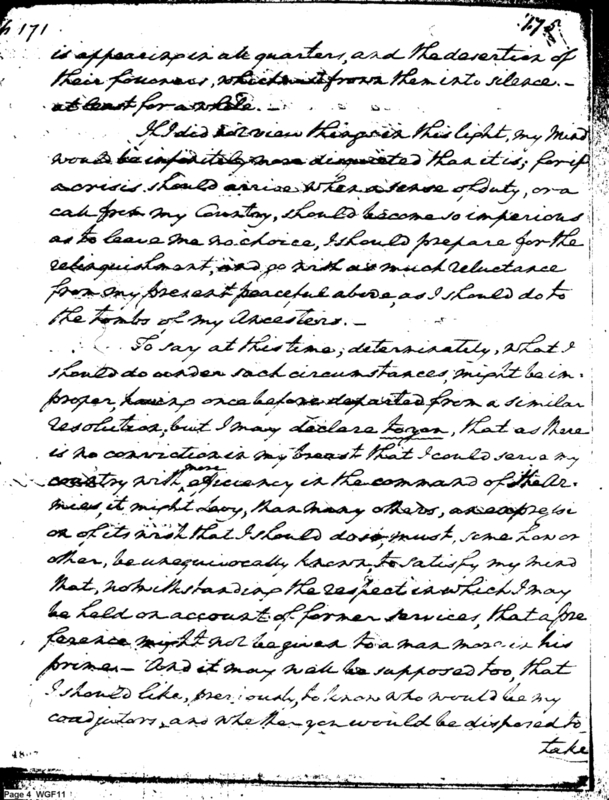 171
175
is appearing in all quarters, and the desertion of
their fouceners, which must frown them into silence.—
at least for a while.—
If I did not view things in this light, my Mind
would be infinitely more disquieted than it is; for if
a crisis should arrive when a sense of duty, or a
call from my Country, should become so imperious
as to leave me no choice, I should prepare for the
relinquishment, and go with as much reluctance
from my present peaceful abode, as I should do to
the tombs of my Ancesters.—
To say at this time, determinately, what I
should do under such circumstances, might be im-
proper, having once before departed from a similar
resolution; but I may declare to you, that as there
is no conviction in my breast that I could serve my
country with more efficiency in the command of the Ar-
mies, it might Levy, than many others, an expressi
on of its wish that I should do so, must, some how or
other, be unequivocally known, to satisfy my mind
that, notwithstanding the respect in which I may
be held on account of former services, that a pre
ference might not be given to a man more in his
prime.— And it may well be supposed too, that
I should like, previously, to know who would be my
coadjutors, and whether you would be disposed to
take
Page 4 WGF11